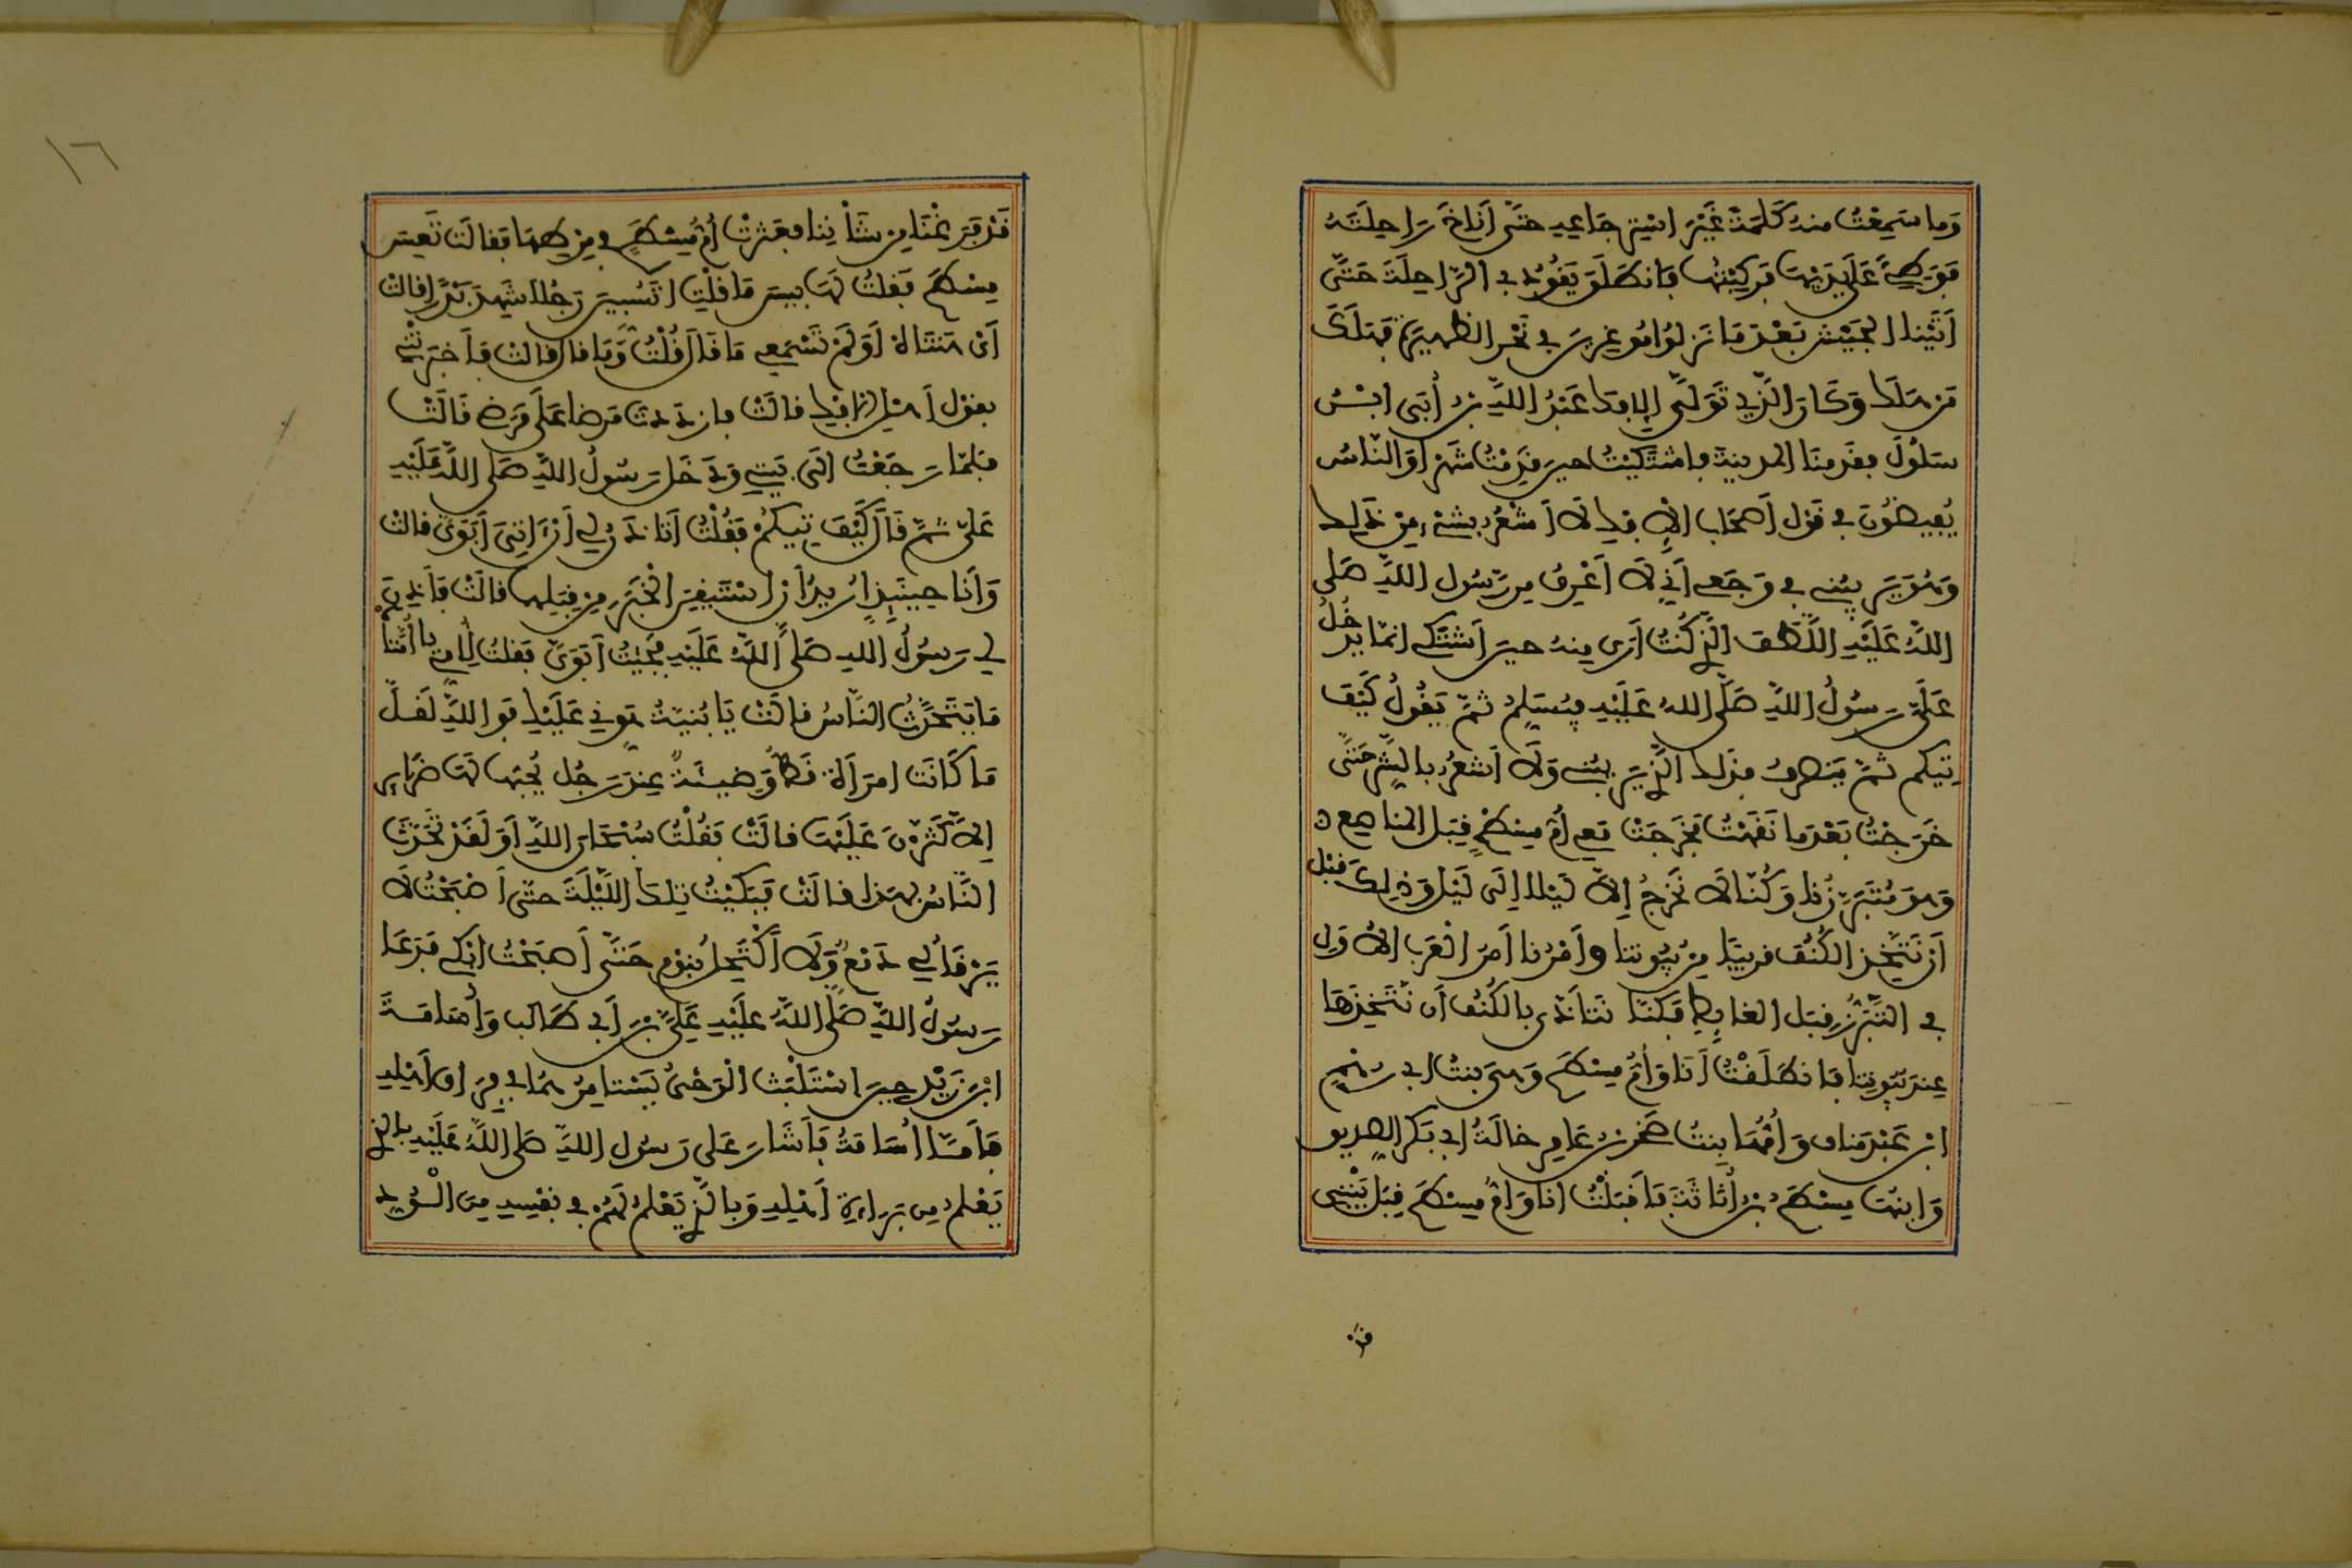 وَمَا سَمِعْتُ مِنْهُ كَلِمَةً غَيْرَ اسْتِرْجَاعِهِ حَتَّى أَنَاخَ رَاحِلَتَهُ
فَوَطِئَ عَلَى يَدَيْهَا فَرَكِبْتُهَا فَانْطَلَقَ يَقُودُ بِي الرَّاحِلَةَ حَتَّى
أَتَيْنَا الْجَيْشَ بَعْدَ مَا نَزَلُوا مُوغِرِينَ فِي نَحْرِ الظَّهِيرَةِ فَهَلَكَ
مَنْ هَلَكَ وَكَانَ الَّذِي تَوَلَّى الإِفْكَ عَبْدُ اللَّهِ بْنُ أُبَيٍّ ابْنُ
سَلُولَ فَقَدِمْنَا الْمَدِينَةَ فَاشْتَكَيْتُ حِينَ قَدِمْتُ شَهْرًا وَالنَّاسُ
يُفِيضُونَ فِي قَوْلِ أَصْحَابِ الإِفْكِ لَا أَشْعُرُ بِشَيْءٍ مِنْ ذَلِكَ
وَهُوَ يَرِيبُنِي فِي وَجَعِي أَنِّي لَا أَعْرِفُ مِنْ رَسُولِ اللَّهِ صَلَّى
اللَّهُ عَلَيْهِ اللُّطْفَ الَّذِي كُنْتُ أَرَى مِنْهُ حِينَ أَشْتَكِي إِنَّمَا يَدْخُلُ
عَلَيَّ رَسُولُ اللَّهِ صَلَّى اللهُ عَلَيْهِ فَيُسَلِّمُ ثُمَّ يَقُولُ كَيْفَ
تِيكُمْ ثُمَّ يَنْصَرِفُ فَذَلِكَ الَّذِي يَرِيبُنِي وَلَا أَشْعُرُ بِالشَّرِّ حَتَّى
خَرَجْتُ بَعْدَمَا نَقَهْتُ فَخَرَجَتْ مَعِي أُمُّ مِسْطَحٍ قِبَلَ الْمَنَاصِعِ
وَهُوَ مُتَبَرَّزُنَا وَكُنَّا لَا نَخْرُجُ إِلَّا لَيْلًا إِلَى لَيْلٍ وَذَلِكَ قَبْلَ
أَنْ نَتَّخِذَ الْكُنُفَ قَرِيبًا مِنْ بُيُوتِنَا وَأَمْرُنَا أَمْرُ الْعَرَبِ الأُوَلِ
فِي التَّبَرُّزِ قِبَلَ الْغَائِطِ فَكُنَّا نَتَأَذَّى بِالْكُنُفِ أَنْ نَتَّخِذَهَا
عِنْدَ بُيُوتِنَا فَانْطَلَقْتُ أَنَا وَأُمُّ مِسْطَحٍ وَهِيَ بِنْتُ أَبِي رُهْمٍ
ابْنِ عَبْدِ مَنَافٍ وَأُمُّهَا بِنْتُ صَخْرِ بْنِ عَامِرٍ خَالَةُ أَبِي بَكْرٍ الصِّدِّيقِ
وَابْنُهَا مِسْطَحُ بْنُ أُثَاثَةَ فَأَقْبَلْتُ أَنَا وَأُمُّ مِسْطَحٍ قِبَلَ بَيْتِي
قد
١٦
قَدْ فَرَغْنَا مِنْ شَأْنِنَا فَعَثَرَتْ أُمُّ مِسْطَحٍ فِي مِرْطِهَا فَقَالَتْ تَعِسَ
مِسْطَحٌ فَقُلْتُ لَهَا بِيسَ مَا قُلْتِ أَتَسُبِّينَ رَجُلًا شَهِدَ بَدْرًا قَالَتْ
أَيْ هَنْتَاهْ أَوَلَمْ تَسْمَعِي مَا قَالَ قُلْتُ وَمَا قَالَ قَالَتْ فَأَخْبَرَتْنِي
بِقَوْلِ أَهْلِ الْإِفْكِ قَالَتْ فَازْدَدْتُ مَرَضًا عَلَى مَرَضِي قَالَتْ
فَلَمَّا رَجَعْتُ إِلَى بَيْتِي وَدَخَلَ رَسُولُ اللَّهِ صَلَّى اللَّهُ عَلَيْهِ
عَلَيَّ ثُمَّ قَالَ كَيْفَ تِيكُمْ فَقُلْتُ أَتَاذَنُ لِي أَنْ آتِيَ أَبَوَيَّ قَالَتْ
وَأَنَا حِينَئِذٍ أُرِيدُ أَنْ أَسْتَيْقِنَ الْخَبَرَ مِنْ قِبَلِهِمَا قَالَتْ فَأَذِنَ
لِي رَسُولُ اللهِ صَلَّى اللَّهُ عَلَيْهِ فَجِئْتُ أَبَوَيَّ فَقُلْتُ لِأُمِّي يَا أُمَّتَاهْ
مَا يَتَحَدَّثُ النَّاسُ قَالَتْ يَا بُنَيَّةُ هَوِّنِي عَلَيْكِ فَوَاللَّهِ لَقَلَّ
مَا كَانَتِ امْرَأَةٌ قَطُّ وَضِيئَةً عِنْدَ رَجُلٍ يُحِبُّهَا لَهَا ضَرَائِرُ
إِلَّا كَثَّرْنَ عَلَيْهَا قَالَتْ فَقُلْتُ سُبْحَانَ اللَّهِ أَوَلَقَدْ تَحَدَّثَ
النَّاسُ بِهَذَا قَالَتْ فَبَكَيْتُ تِلْكَ اللَّيْلَةَ حَتَّى أَصْبَحْتُ لَا
يَرْقَأُ لِي دَمْعٌ وَلَا أَكْتَحِلُ بِنَوْمٍ حَتَّى أَصْبَحْتُ أَبْكِي فَدَعَا
رَسُولُ اللَّهِ صَلَّى اللَّهُ عَلَيْهِ عَلِيَّ بْنَ أَبِي طَالِبٍ وَأُسَامَةَ
ابْنَ زَيْدٍ حِينَ اسْتَلْبَثَ الْوَحْيُ يَسْتَامِرُهُمَا فِي فِرَاقِ أَهْلِهِ
فَأَمَّا أُسَامَةُ فَأَشَارَ عَلَى رَسُولِ اللَّهِ صَلَّى اللَّهُ عَلَيْهِ بِالَّذِي
يَعْلَمُ مِنْ بَرَاءَةِ أَهْلِهِ وَبِالَّذِي يَعْلَمُ لَهُمْ فِي نَفْسِهِ مِنَ الْوُدِّ